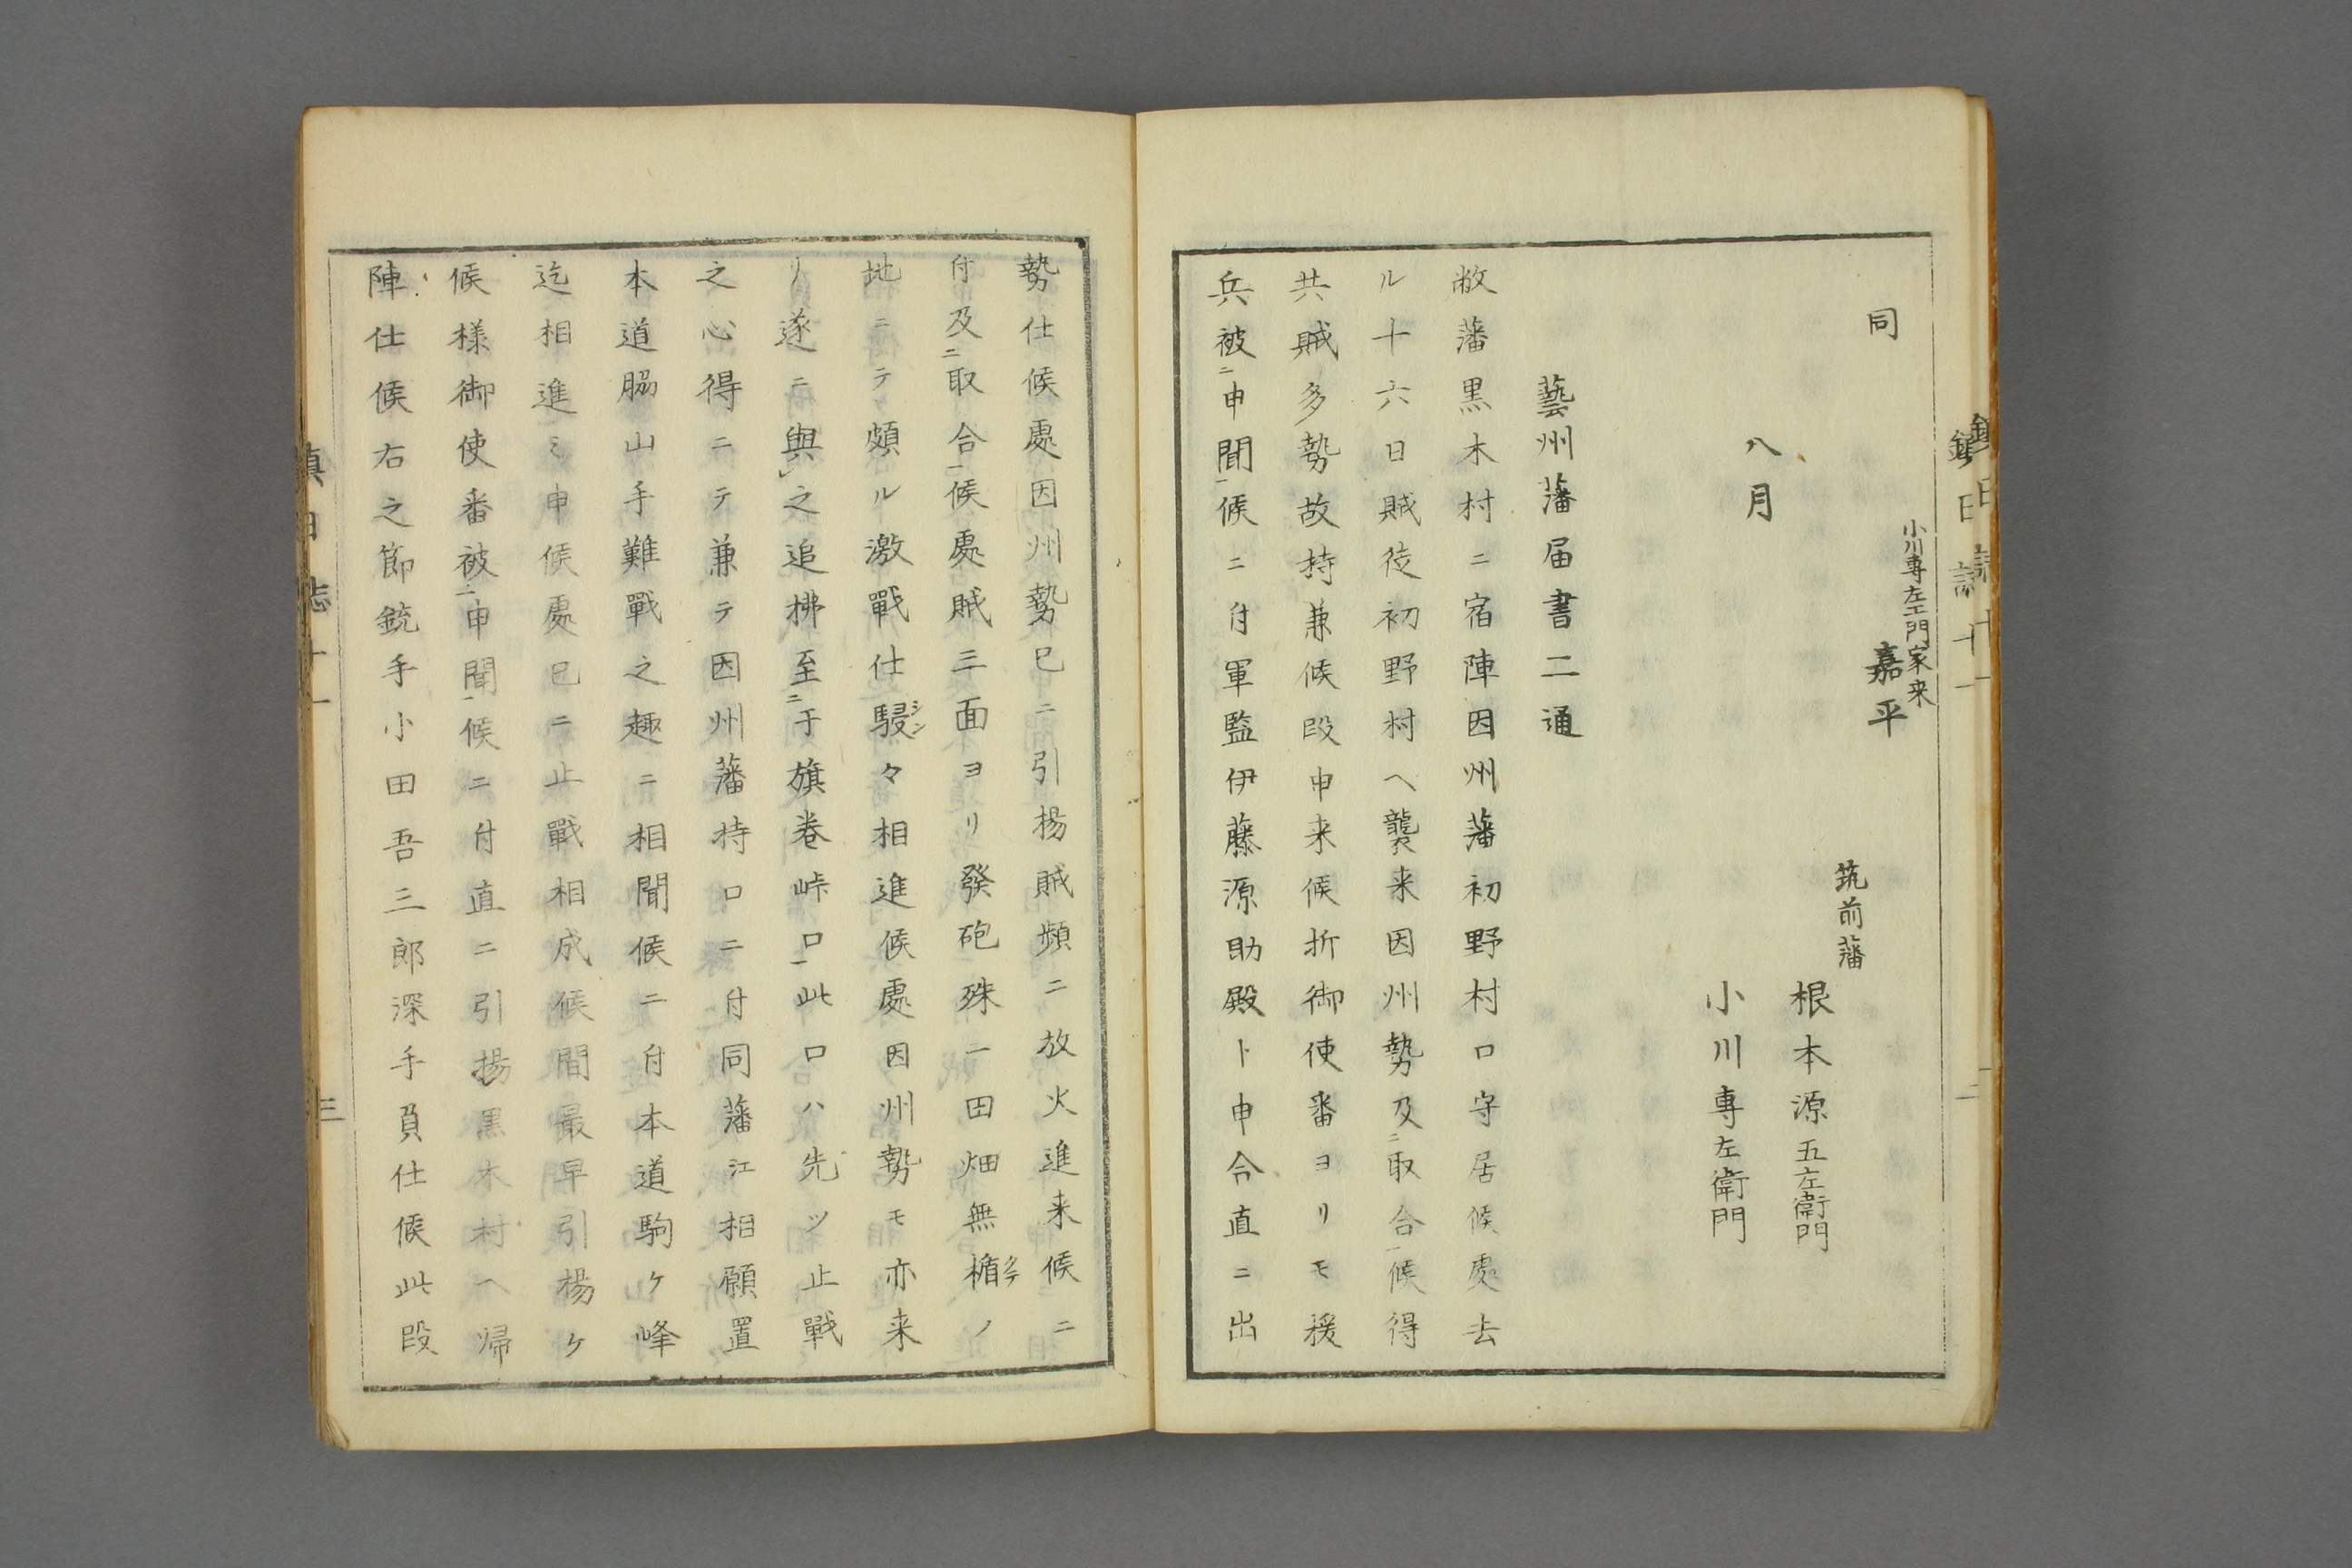 同
小川専左エ門家来
嘉平
筑前藩
根本源五左衛門
八月
小川専左衛門
藝州藩届書二通
敝藩黒木村ニ宿陣因州藩初野村口守居候處去
ル十六日賊徒初野村ヘ襲来因州勢及ニ取合一候得
共賊多勢故持兼候段申来候折御使番ヨリモ援
兵被ニ申聞一候ニ付軍監伊藤源助殿ト申合直ニ出
勢仕候處因州勢已ニ引揚賊頻ニ放火進来候ニ
付及ニ取合一候處賊三面ヨリ發砲殊ニ田畑無楯ノ
タテ
地ニテ頗ル激戰仕駸々相進候處因州勢モ亦来
シン
リ遂ニ與レ之追拂至ニ于旗巻峠口一此口ハ先ツ止戰
之心得ニテ兼テ因州藩持口ニ付同藩江相願置
本道脇山手難戰之趣ニ相聞候ニ付本道駒ケ峰
迄相進ミ申候處已ニ止戰相成候間最早引揚ケ
候様御使番被ニ申聞一候ニ付直ニ引揚黒木村ヘ帰
陣仕候右之節銃手小田吾三郎深手負仕候此段
鎮日誌十一
三